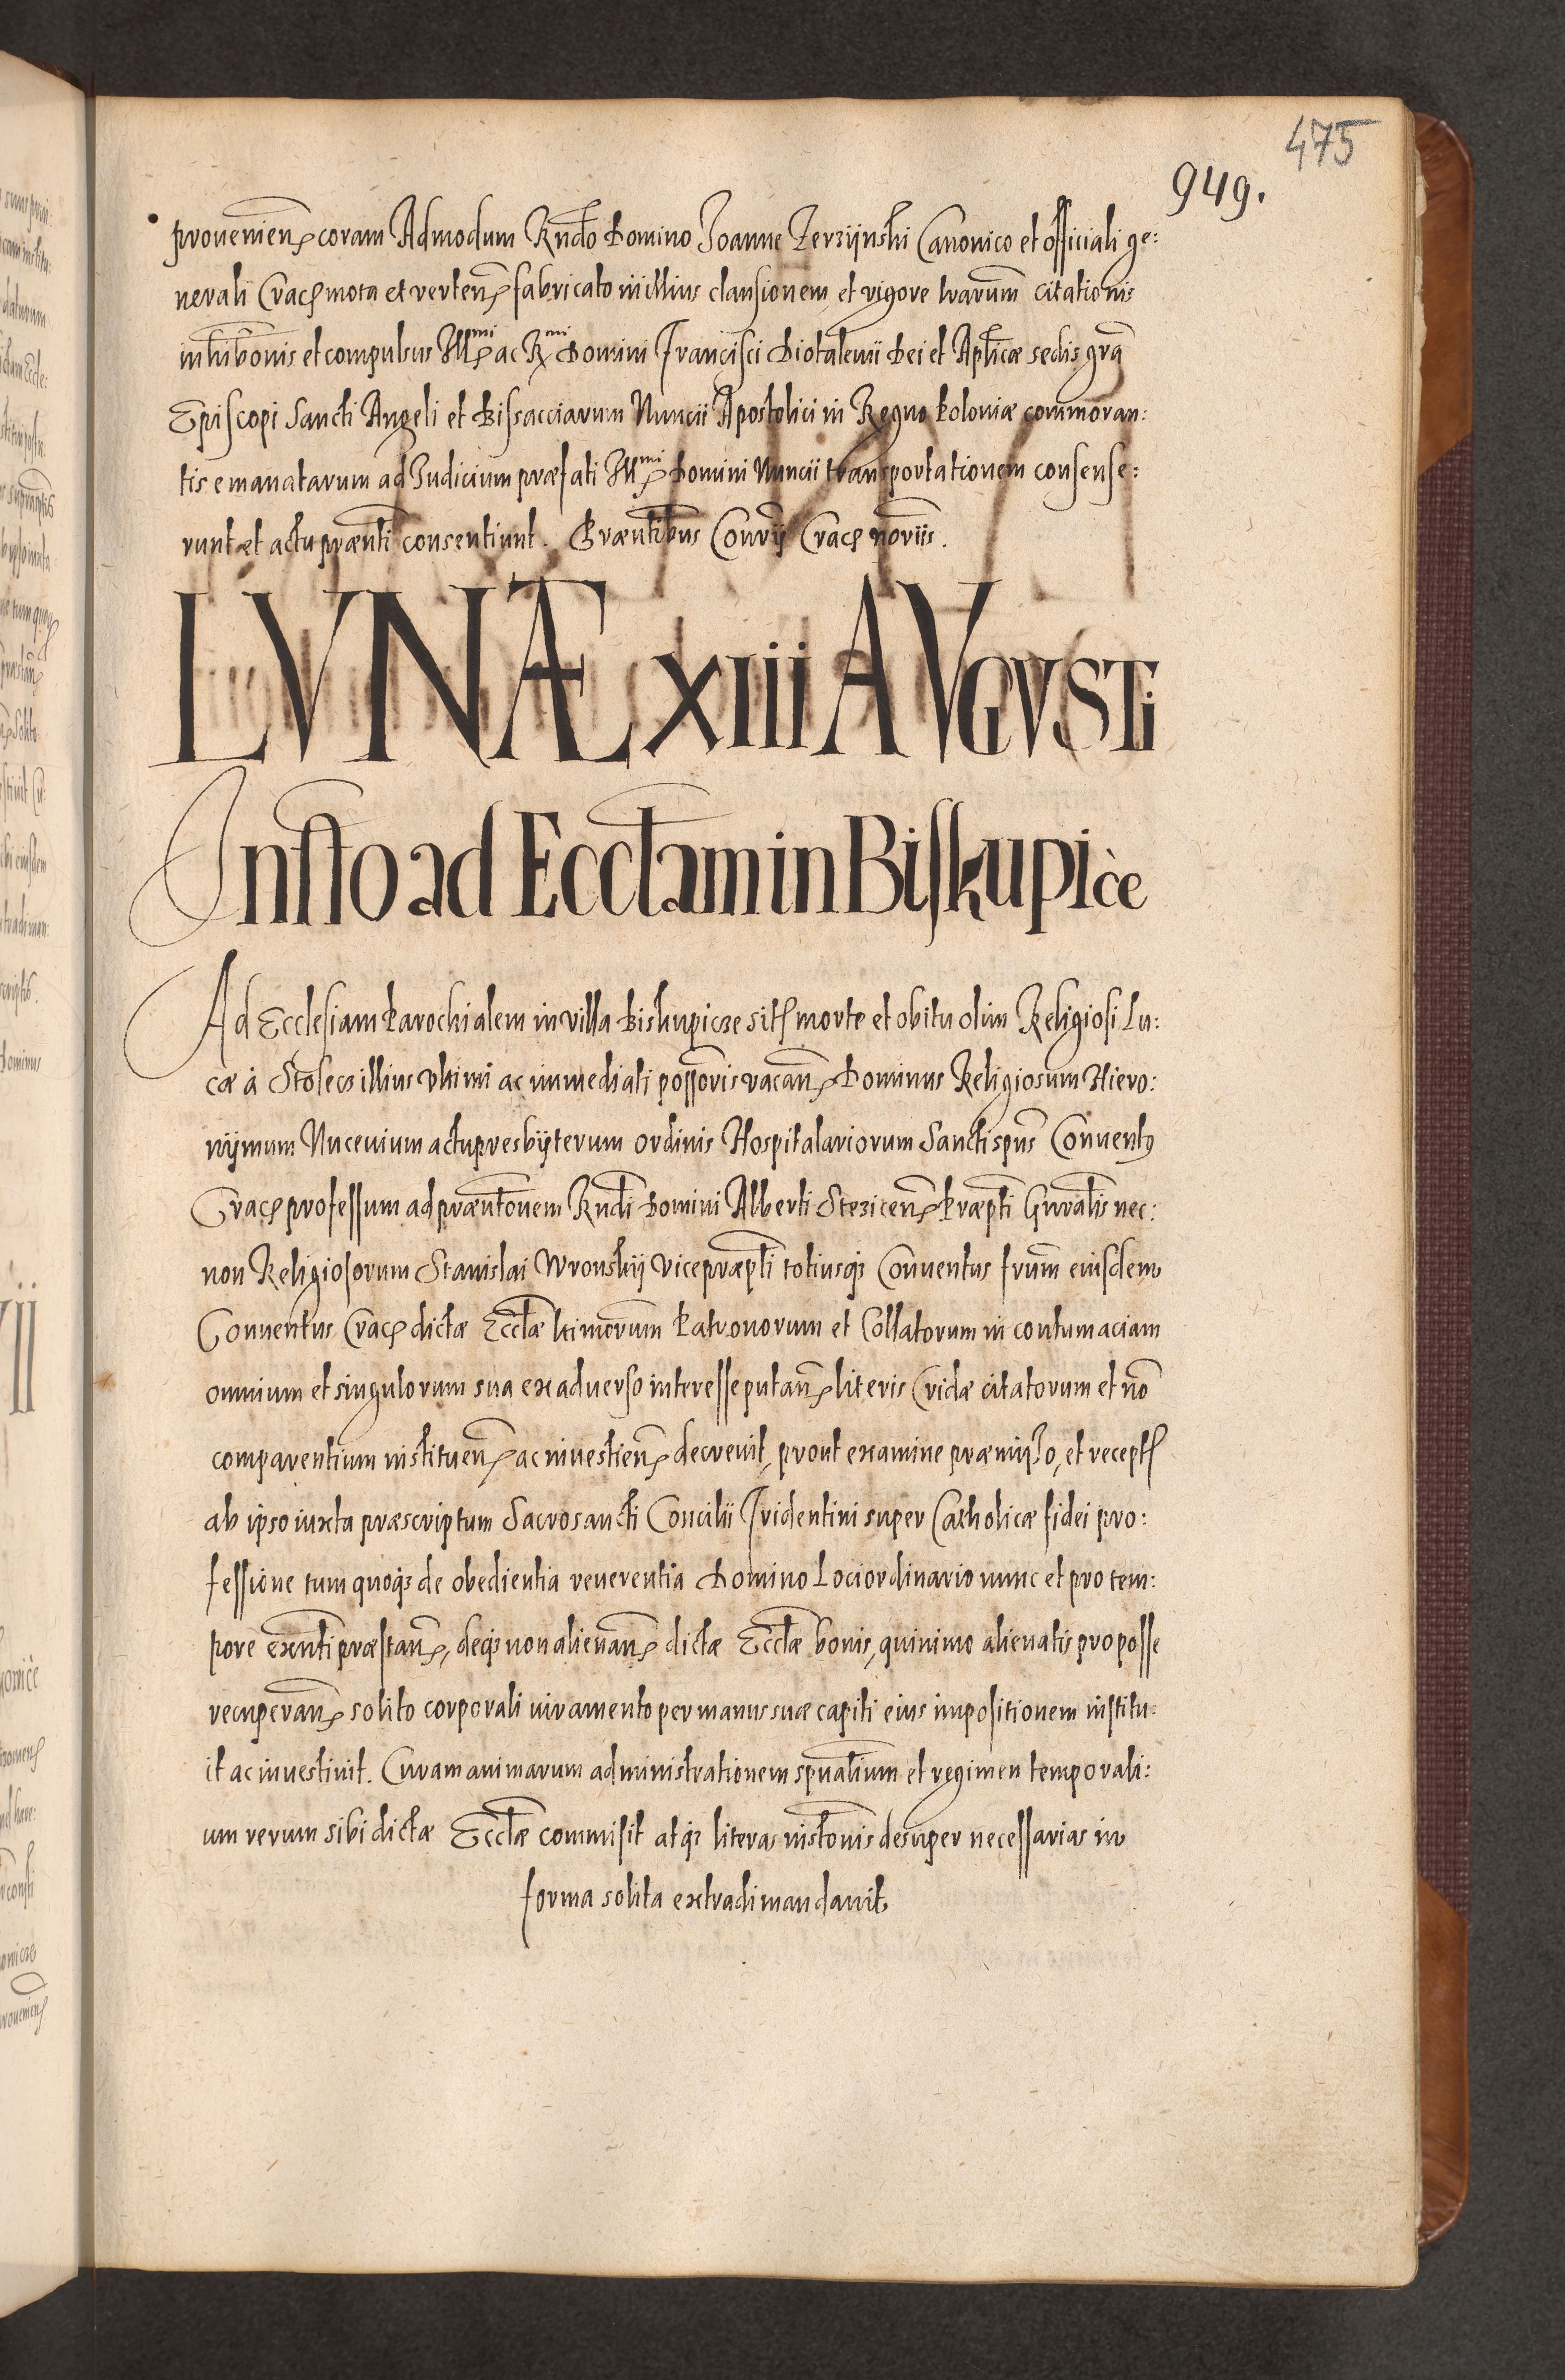 475
949.
proueniens coram Admodum Rndo Domino Joanne Jerzijnski Canonico et officiali ge:
nerali Crac mota et verten fabricato in illius clausionem et vigore lrarum citationis
inhibonis et compulsus Illmi ac Rmi Domini Francisci Diotalenii Dei et Aplicæ sedis gra
Episcopi Sancti Angeli et Bissacciarum Nuncii Apostolici in Regno Poloniæ commoran:
tis emanatarum ad Judicium præfati Illmi Domini Nuncii transportationem consense:
runt et actu prænti consentiunt. Præntibus Conrij Crac noriis.
LVNÆ XIIII AVGVSTi
Insto ad Ecclam in Biskupice
Ad Ecclesiam Parochialem in villa Biskupicze sit morte et obitu olim Religiosi Lu:
cæ à Stolecz illius vltimi ac immediati possoris vacan Dominus Religiosum Hiero:
nijmum Nucenium actu presbijterum ordinis Hospitalariorum Sancti spus Conuentus
Crac professum ad præntonem Rndi Domini Alberti Stezicen Præpti Gnralis nec:
non Religiosorum Stanislai Wronskij vicepræpti totiusq Conuentus frum eiusdem
Conuentus Crac dictæ Ecclæ ltimorum Patronorum et Collatorum in contumaciam
omnium et singulorum sua ex aduerso interesse putan literis Cridæ citatorum et no
comparentium instituen ac inuestien decreuit, prout examine præmisso, et recept
ab ipso iuxta præscriptum Sacrosancti Concilii Tridentini super Catholicæ fidei pro:
fessione tum quoq de obedientia reuerentia Domino Loci ordinario nunc et pro tem:
pore exnti præstan, deq non alienan dictæ Ecclæ bonis, quinimo alienatis pro posse
recuperan solito corporali iuramento per manus suæ capiti eius impositionem institu:
it ac inuestiuit. Curam animarum administrationem spualium et regimen temporali:
um rerum sibi dictæ Ecclæ commisit atq literas instonis desuper necessarias in
forma solita extradi mandauit